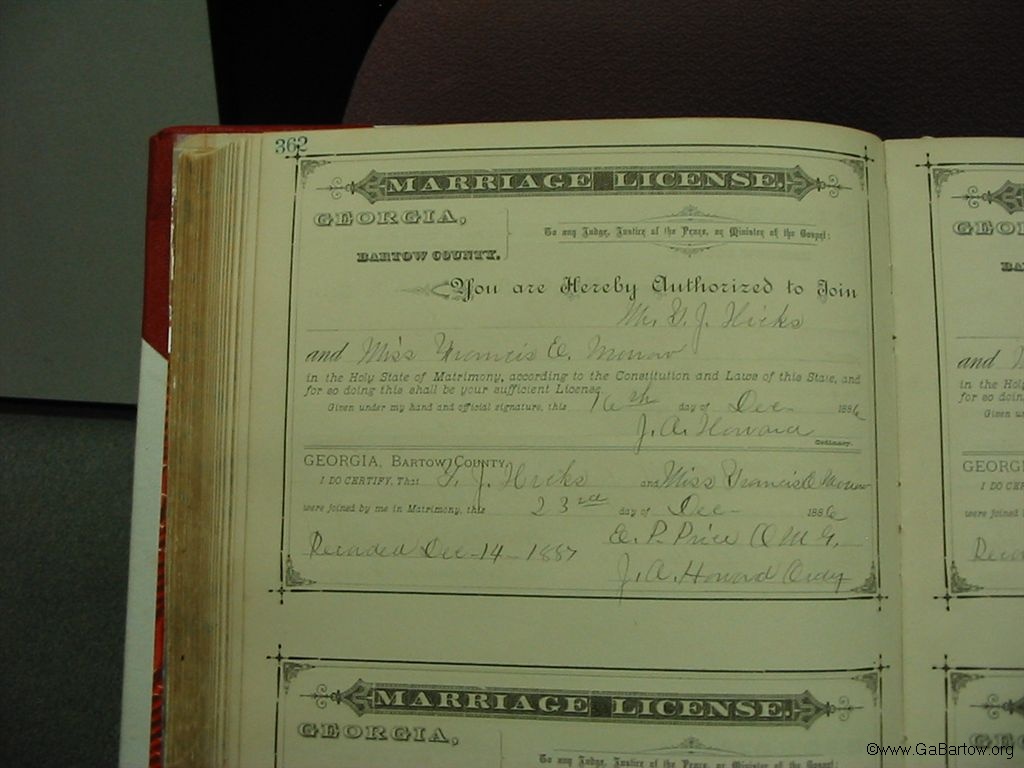 362
MARRIAGE LICENSE.
GEORGIA,
BARTOW COUNTY.
To any Judge, Justice of the Peace, or Minister of the Gospel:
You are Hereby Authorized to Join
Mr. J. Hicks
and Miss Francis E. Morrow
in the Holy State of Matrimony, according to the Constitution and Laws of this State, and
for so doing this shall be your sufficient License.
Given under my hand and official signature, this 16th day of Dec 1886
J. A. Howard
Ordinary.
GEORGIA, BARTOW COUNTY.
I DO CERTIFY, That J. Hicks and Miss Francis E Morrow
were joined by me in Matrimony, this 23rd day of Dec 1886
E. P. Price O M G.
Recorded Dec-14-1887
J. A. Howard Ordy
MARRIAGE LICENSE.
GEORGIA,
To any Judge, Justice of the Peace, or Minister of the Gospel:
GEO
BA
and M
in the Holy
for so doin
Given u
GEORGI
I DO
were joined
Reco
M
GEO
©www.GaBartow.org